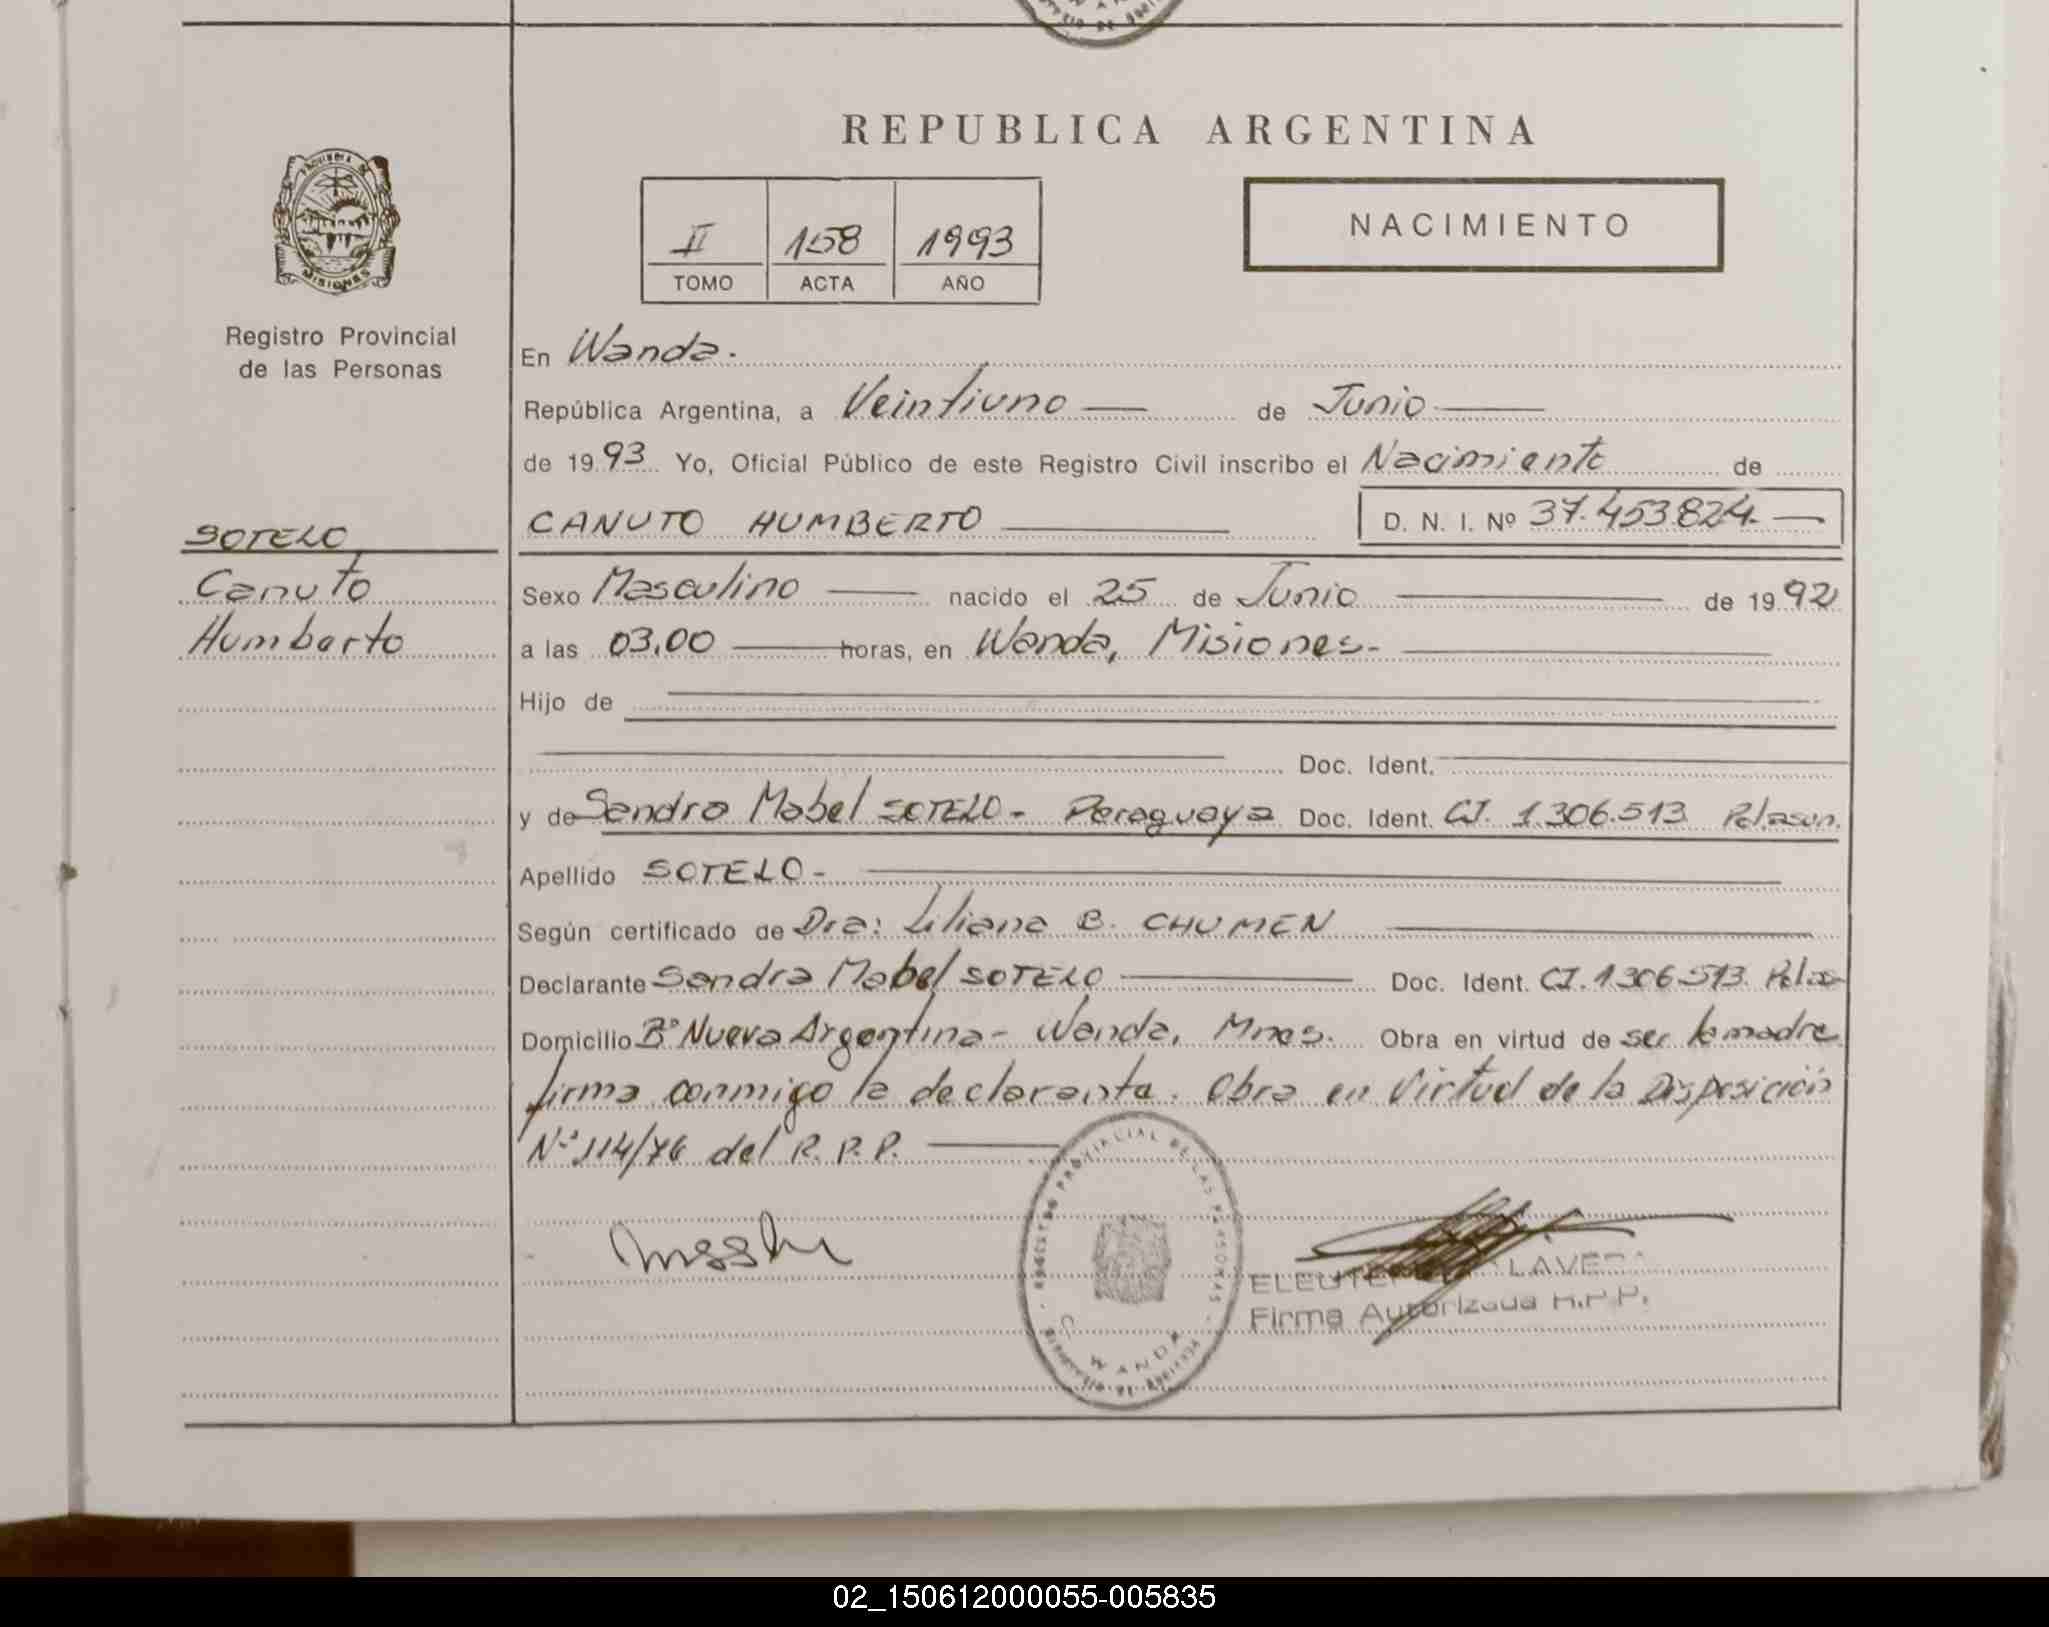 REPUBLICA ARGENTINA
PROVINCIA DE
MISIONES
II 158 1993
TOMO ACTA AÑO
NACIMIENTO
Registro Provincial
de las Personas
En Wanda.
República Argentina, a Veintiuno de Junio
de 1993 Yo, Oficial Público de este Registro Civil inscribo el Nacimiento de
CANUTO HUMBERTO D. N. I. Nº 37.453.824.
SOTELO
Canuto
Humberto
Sexo Masculino nacido el 25 de Junio de 1992
a las 03,00 horas, en Wanda, Misiones.-
Hijo de
Doc. Ident.
y de Sandra Mabel SOTELO- Paraguaya Doc. Ident. CI. 1.306.513. Pol.asun.
Apellido SOTELO-
Según certificado de Dra: Liliana B. CHUMEN
Declarante Sandra Mabel SOTELO Doc. Ident. CI. 1.306.513.
Domicilio Bº Nueva Argentina- Wanda, Mnes. Obra en virtud de ser la madre
firma conmigo la declarante. Obra en Virtud de la Disposición
Nº 114/76 del R.P.P.
REGISTRO PROVINCIAL DE LAS PERSONAS
WANDA
Firma Autorizada R.P.P.
02_150612000055-005835